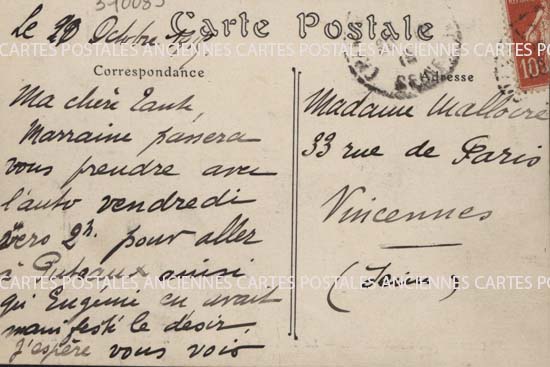 390085
Carte Postale
le 20 Octobre
CARTES POSTALES ANCIENNES CARTES POSTALES ANCIENNES CARTES POSTALES
Correspondance
Adresse
10
Ma chère Tante,
Marraine passera
vous prendre avec
l'auto vendredi
vers 2h. pour aller
à Puteaux ainsi
qu' Eugenie en avait
manifesté le désir.
J'espère vous voir
Madame Malloire
33 rue de Paris
Vincennes
(Seine)
CARTES POSTALES ANCIENNES CARTES POSTALES ANCIENNES CARTES POSTALES